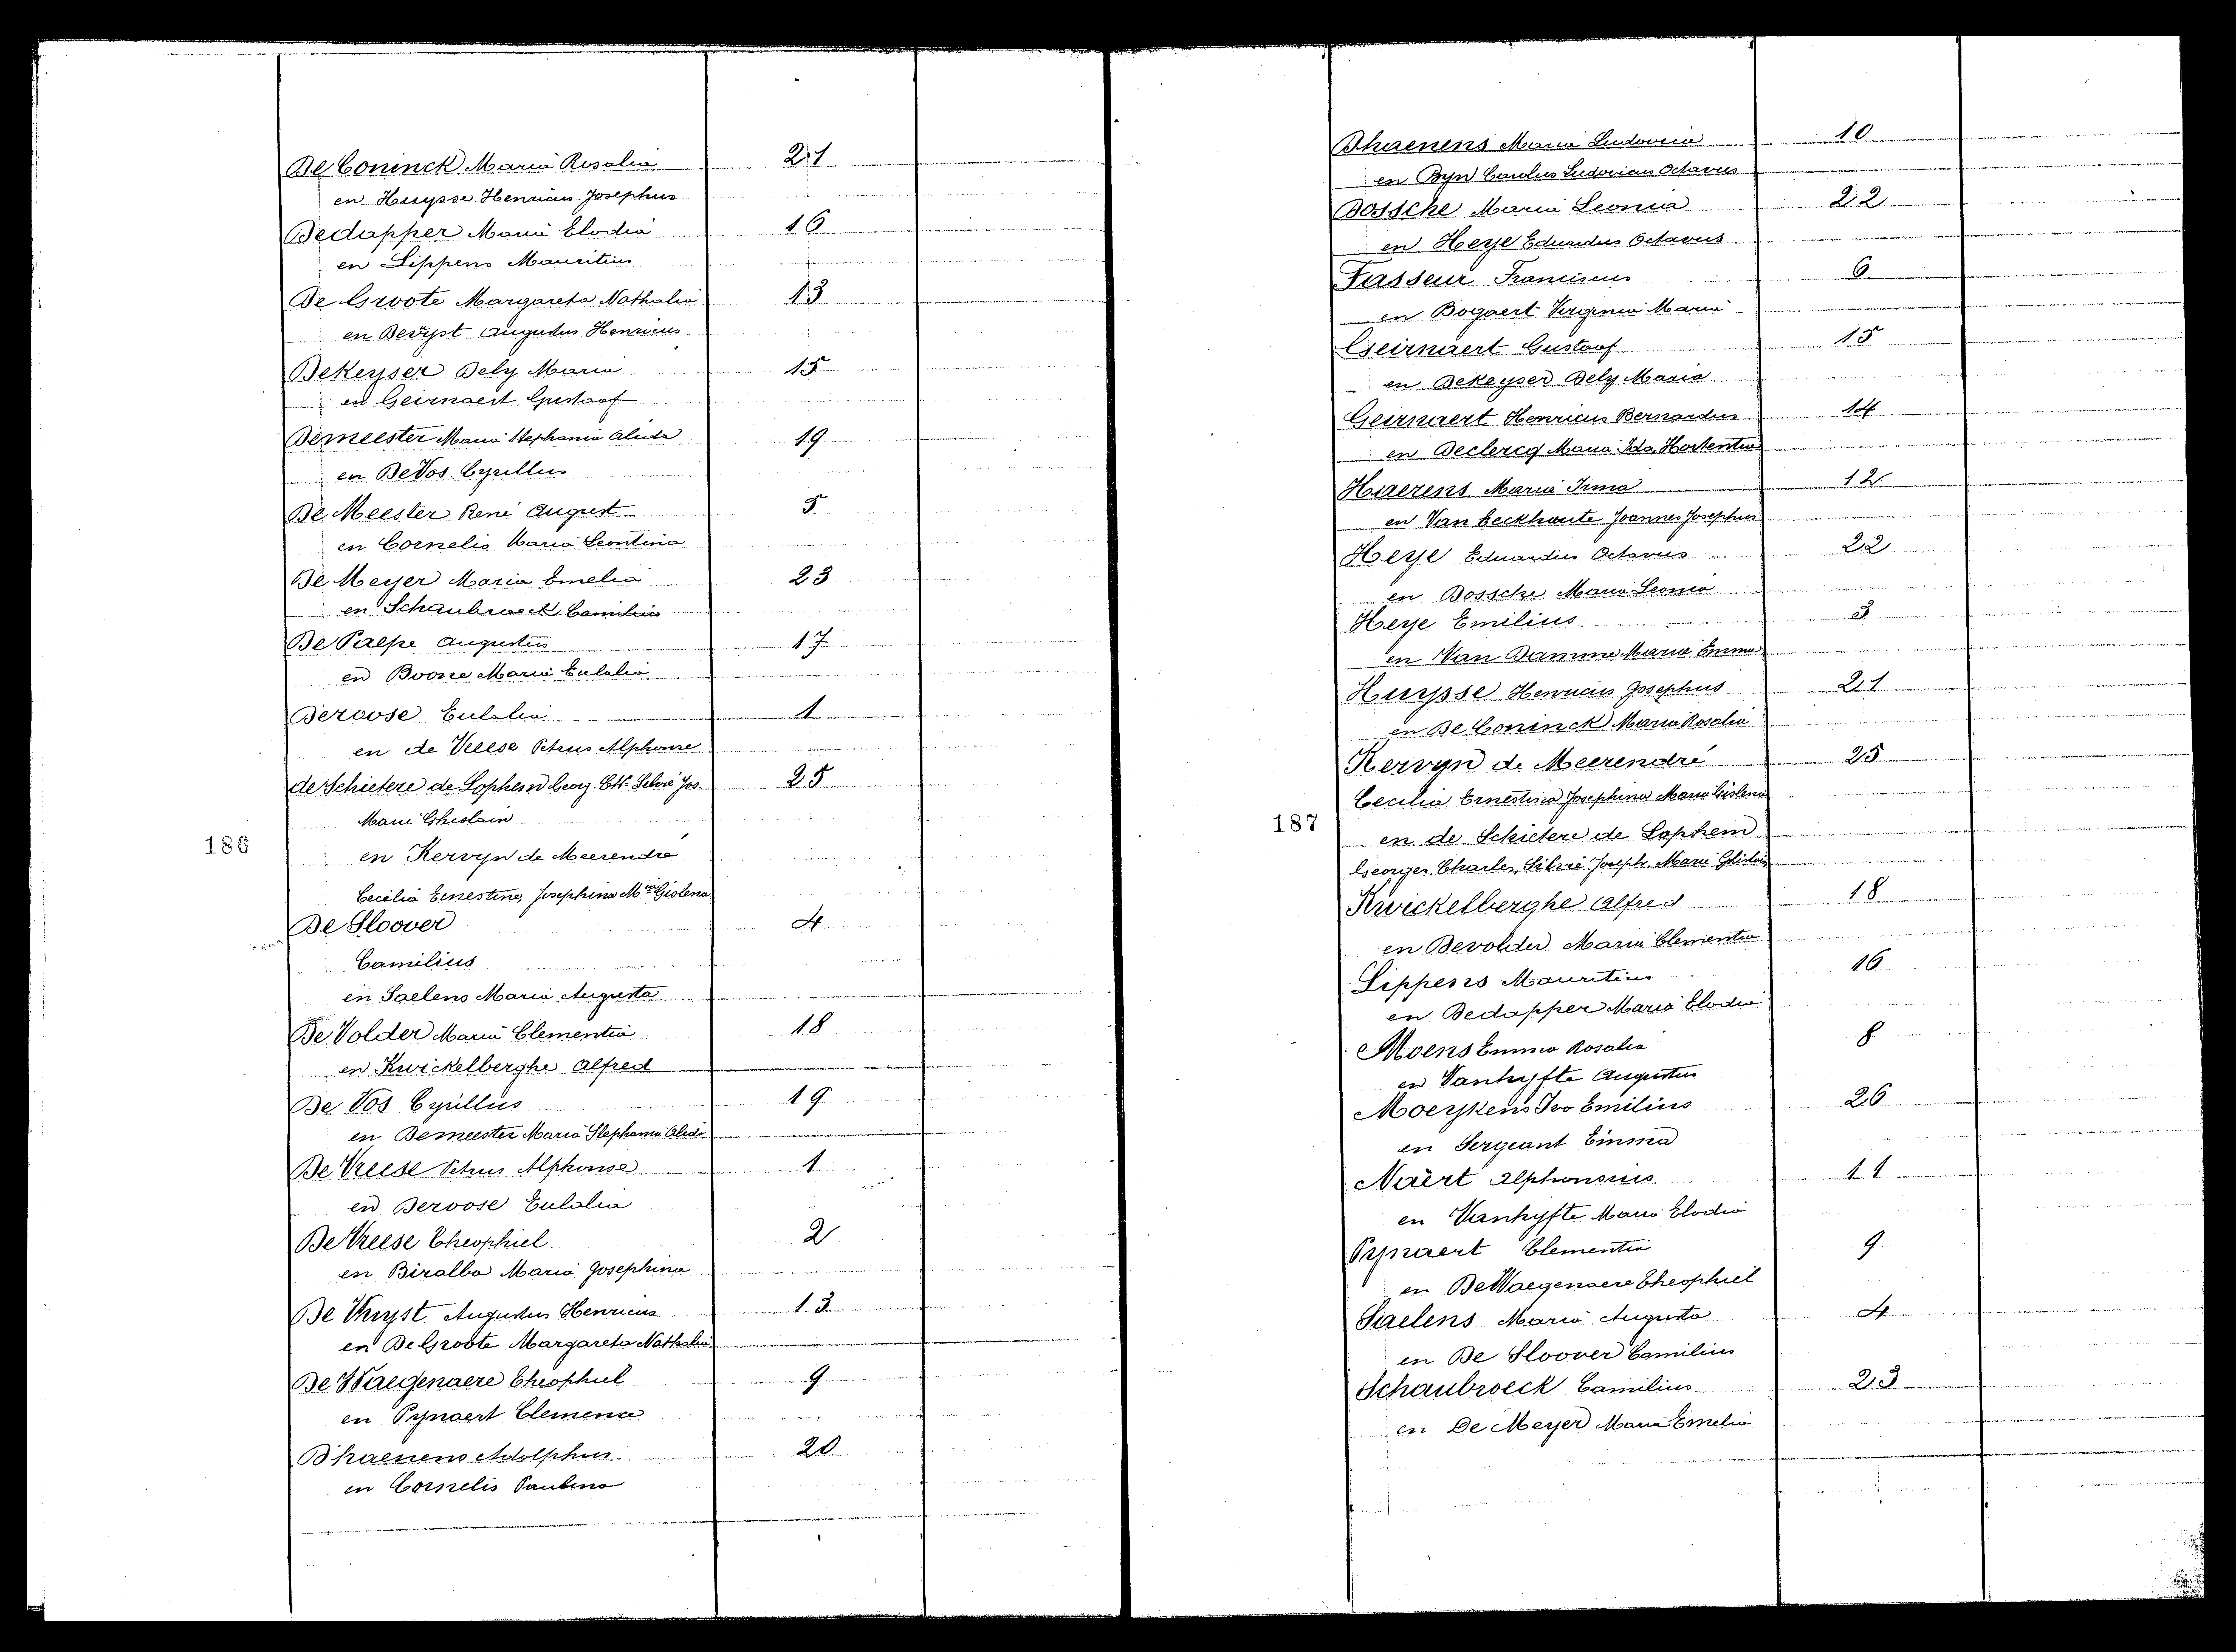 De Coninck Maria Rosalia 21
en Huysse Henricus Josephus
Dedapper Maria Elodia 16
en Lippens Mauritius
De Groote Margareta Nathalia 13
en Devuyst Augustus Henricus
DeKeyser Dely Maria 15
en Geirnaert Gustaaf
Demeester Maria Stephania Alida 19
en De Vos Cyrillus
De Meester René August 5
en Cornelis Maria Leontina
De Meyer Maria Emelia 23
en Schaubroeck Camilius
De Paepe Augustus 17
en Boone Maria Eulalia
Deroose Eulalia 1
en de Vreese Petrus Alphonse
de Schietere de Lophem Georg. Ch. Silvié Jos. 25
Marie Ghislain
en Kervyn de Meerendré
186
Cecilia Ernestina Josephina Mria Gislena
De Sloover 4
Camilius
en Saelens Maria Augusta
De Volder Maria Clementia 18
en Kwickelberghe Alfred
De Vos Cyrillus 19
en Demeester Maria Stephania Alida
De Vreese Petrus Alphonse 1
en Deroose Eulalia
De Vreese Theophiel 2
en Maria Josephina
De Vuyst Augustus Henricus 13
en De Groote Margareta Nathalia
De Waegenaere Theophiel 9
en Pynaert Clemence
Dhaenens Adolphus 20
en Cornelis Paulina
Dhaenens Maria Ludovica 10
en Byn Carolus Ludovicus Octavus
Dossche Maria Leonia 22
en Heye Eduardus Octavus
Fasseur Franciscus 6
en Bogaert Virginia Maria
Geirnaert Gustaaf 15
en DeKeyser Dely Maria
Geirnaert Henricus Bernardus 14
en Declercq Maria Ida Hortentia
Haerens Maria Irma 12
en Van Eeckhoute Joannes Josephus
Heye Eduardus Octavus 22
en Dossche Maria Leonia
Heye Emilius 3
en Van Damme Maria Emma
Huysse Henricus Josephus 21
en De Coninck Maria Rosalia
Kervyn de Meerendré 25
Cecilia Ernestina Josephina Maria Gislena
187
en de Schietere de Lophem
Georges, Charles, Silvié Joseph Marie Ghislain
Kwickelberghe Alfred 18
en Devolder Maria Clementia
Lippens Mauritius 16
en Dedapper Maria Elodia
Moens Emma Rosalia 8
en Vanhyfte Augustus
Moeykens Ivo Emilius 26
en Sergeant Emma
Naert Alphonsius 11
en Vanhyfte Maria Elodia
Pynaert Clementia 9
en De Waegenaere Theophiel
Saelens Maria Augusta 4
en De Sloover Camilius
Schaubroeck Camilius 23
en De Meyer Maria Emelia